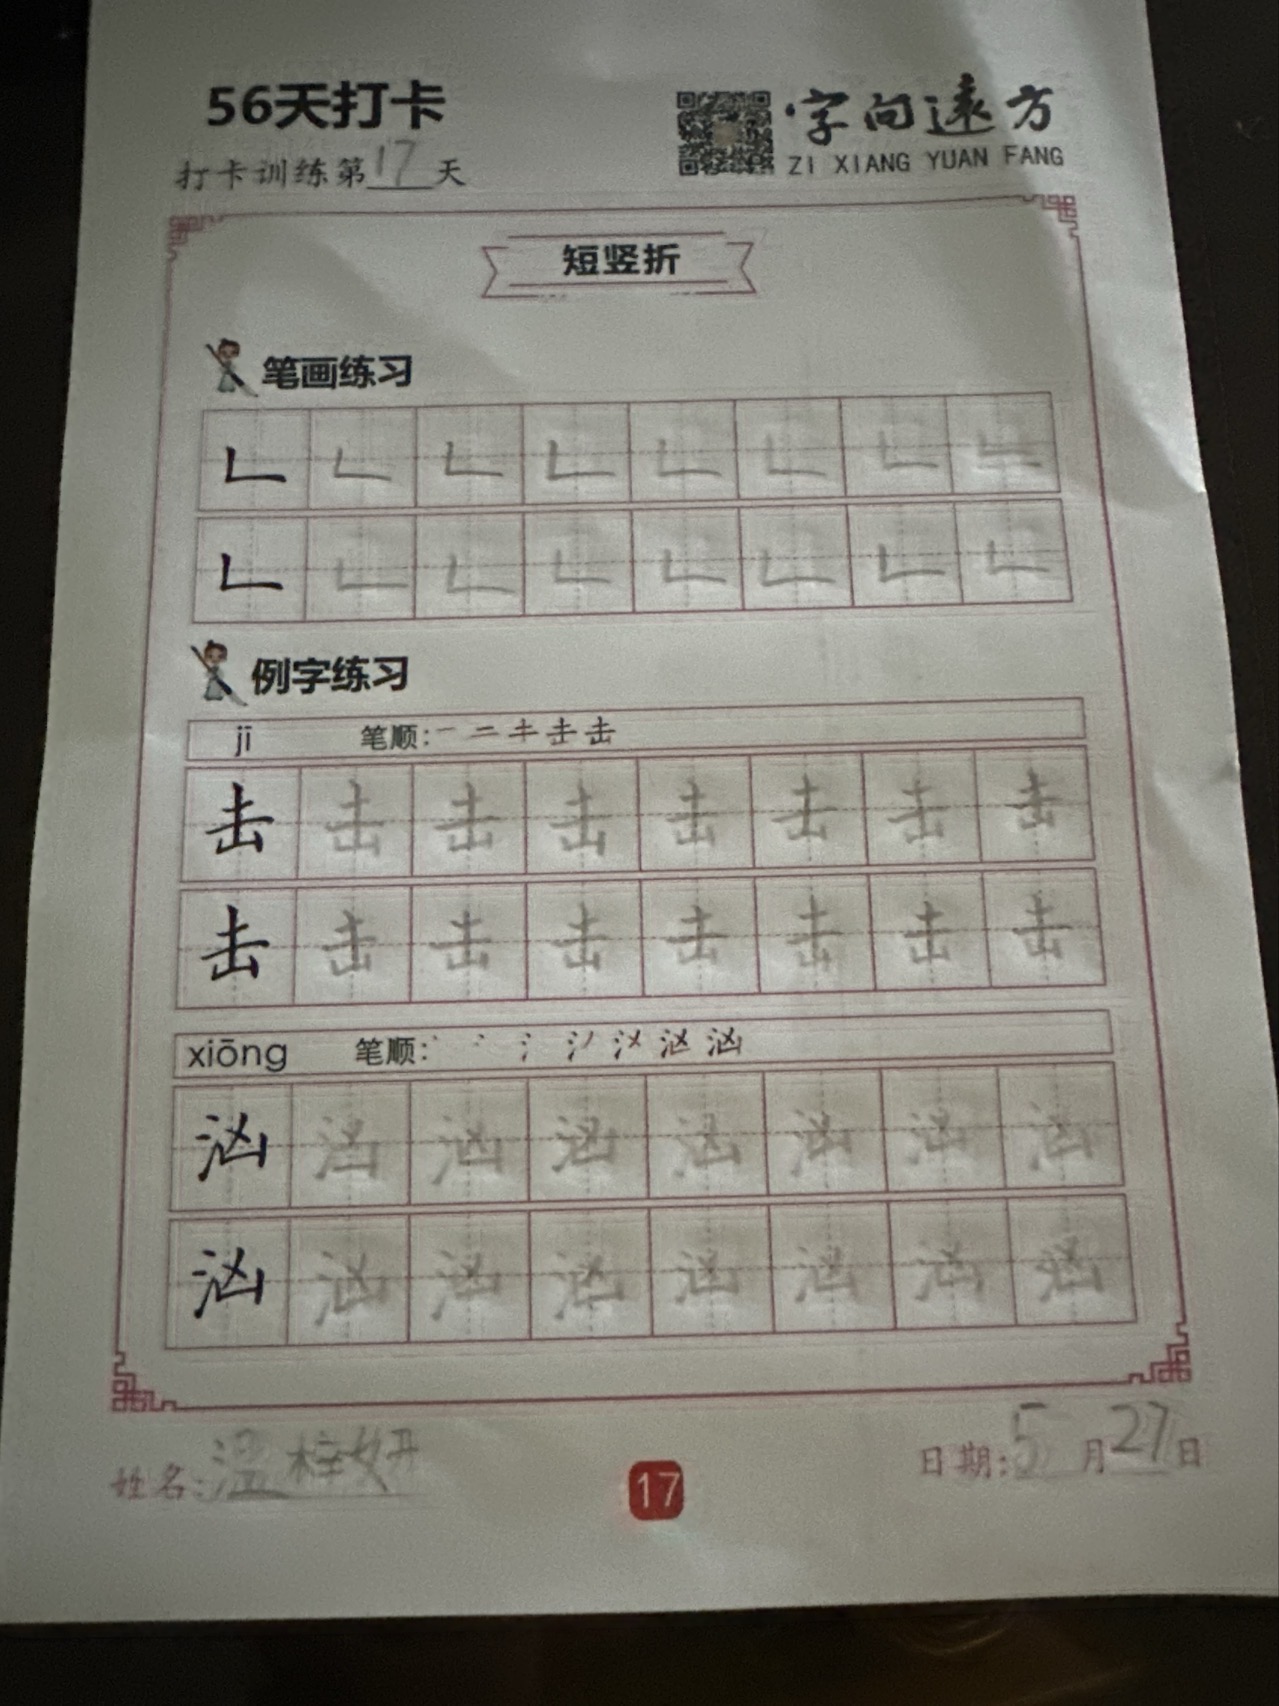 56天打卡
字向遠方
ZI XIANG YUAN FANG
打卡训练第17天
短竖折
笔画练习
𠃊 𠃊 𠃊 𠃊 𠃊 𠃊 𠃊 𠃊
𠃊 𠃊 𠃊 𠃊 𠃊 𠃊 𠃊 𠃊
例字练习
jī 笔顺:
击 击 击 击 击 击 击 击
击 击 击 击 击 击 击 击
xiōng 笔顺:
汹 汹 汹 汹 汹 汹 汹 汹
汹 汹 汹 汹 汹 汹 汹 汹
姓名:温梓妍
17
日期:5月27日